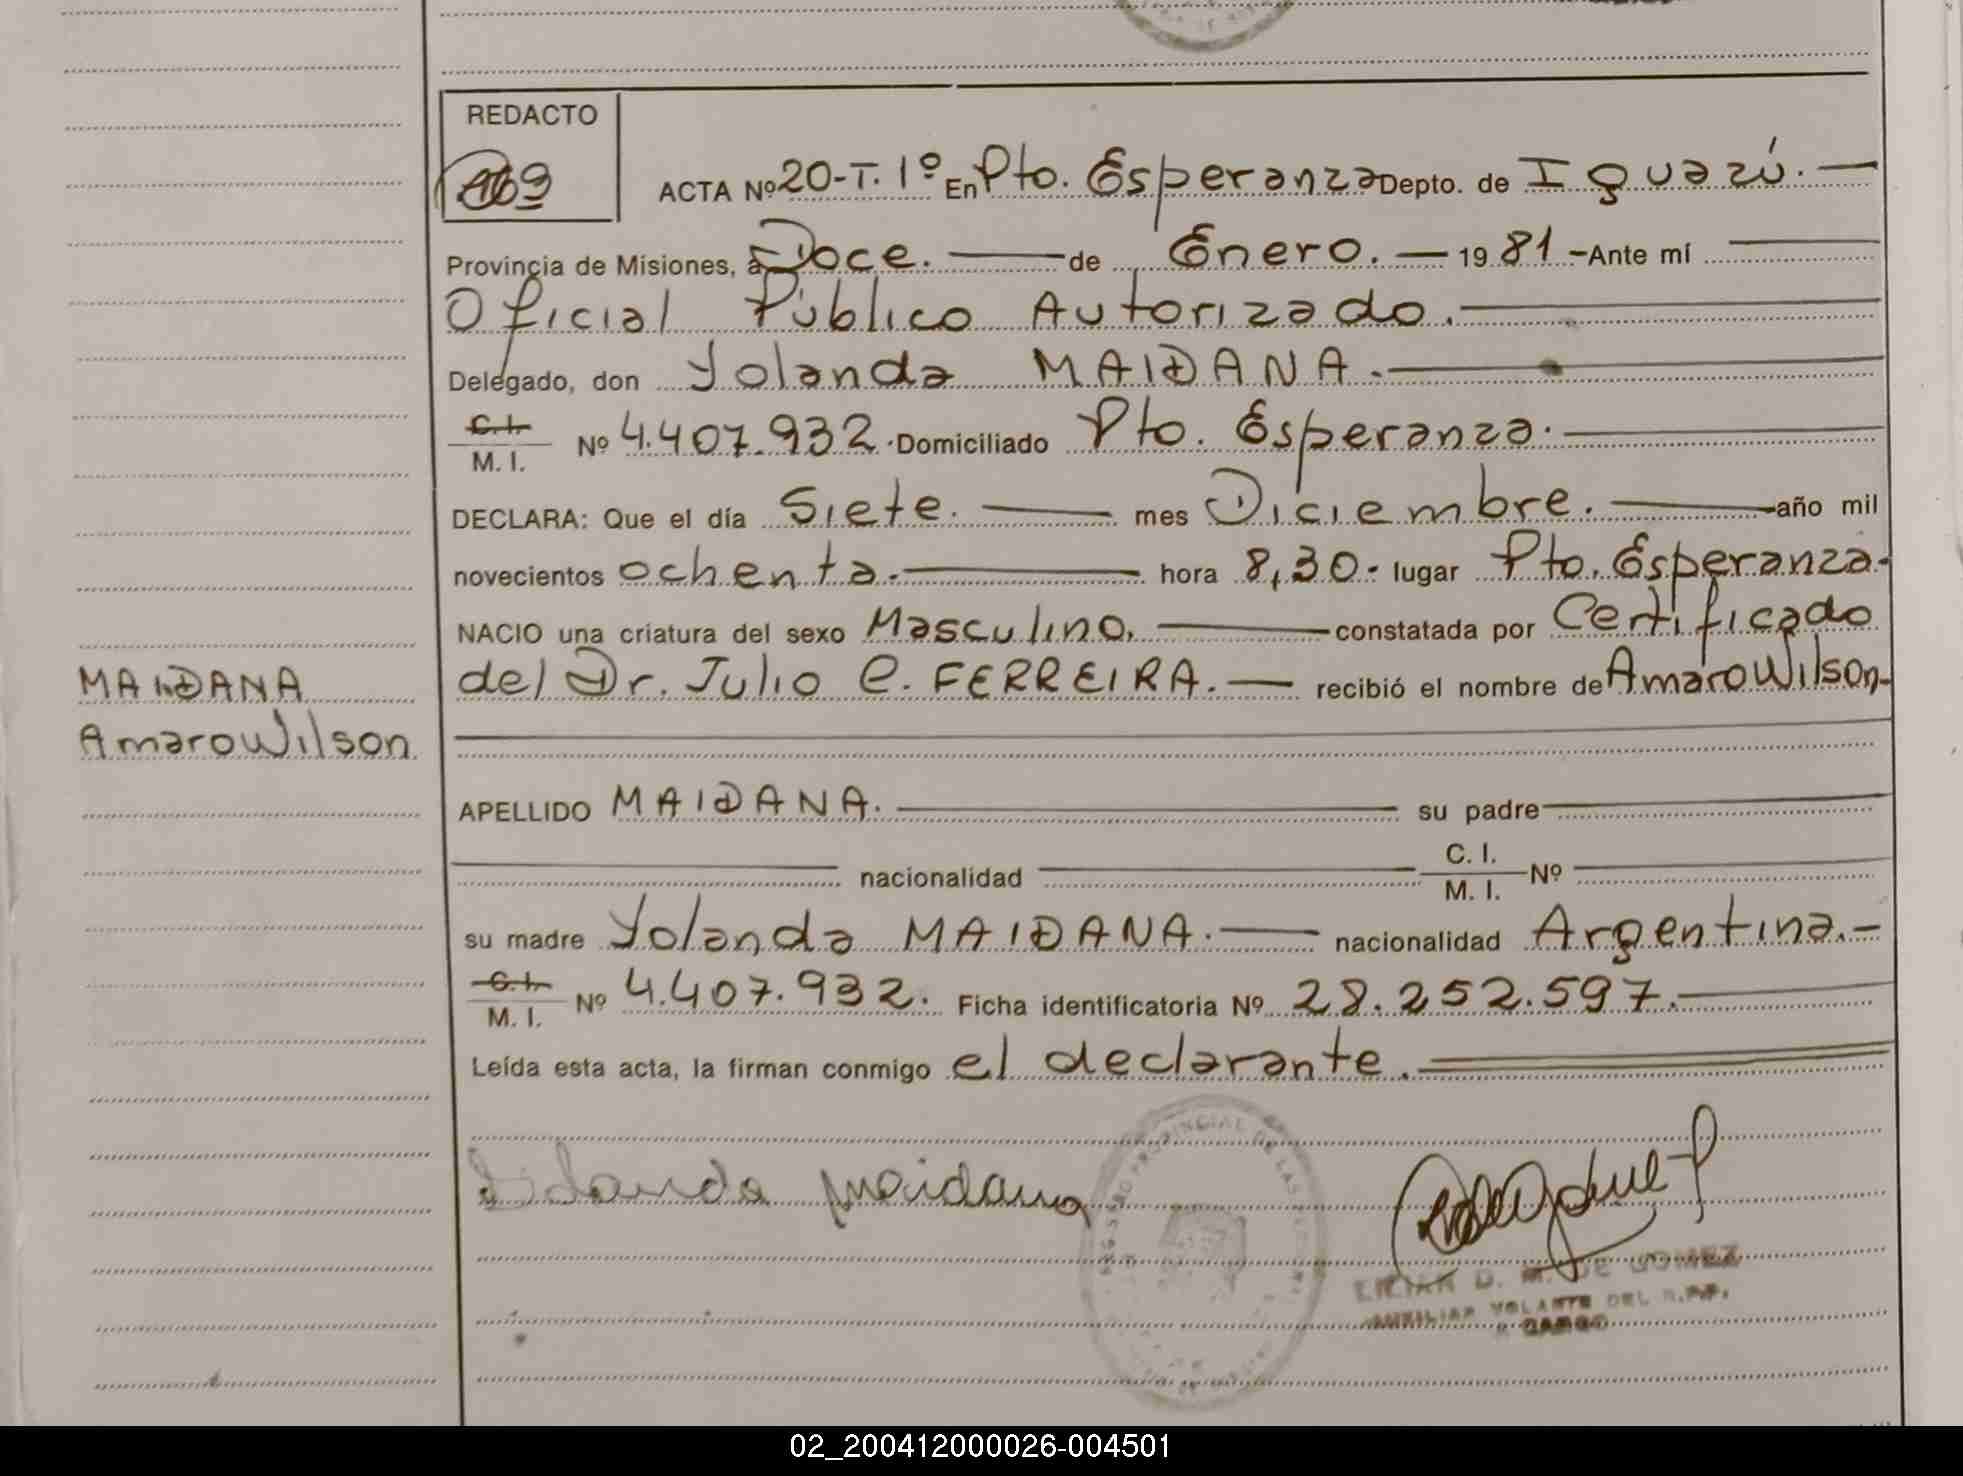 REDACTO
ACTA Nº 20-T. 1º En Pto. Esperanza Depto. de Iguazú.
Provincia de Misiones, a Doce. de Enero. 1981 - Ante mí
Oficial Público Autorizado.
Delegado, don Yolanda MAIDANA.
C.I.
M. I. Nº 4.407.932. Domiciliado Pto. Esperanza.
DECLARA: Que el día Siete. mes Diciembre. año mil
novecientos ochenta. hora 8,30. lugar Pto. Esperanza.
NACIO una criatura del sexo Masculino, constatada por Certificado
del Dr. Julio C. FERREIRA. recibió el nombre de Amaro Wilson
MAIDANA
Amaro Wilson
APELLIDO MAIDANA. su padre
nacionalidad C. I.
M. I. Nº
su madre Yolanda MAIDANA. nacionalidad Argentina.
C.I.
M. I. Nº 4.407.932. Ficha identificatoria Nº 28.252.597.
Leída esta acta, la firman conmigo el declarante.
Maidana
LILIAN D. M. DE GOMEZ
AUXILIAR VOLANTE DEL R.P.P.
A CARGO
02_200412000026-004501